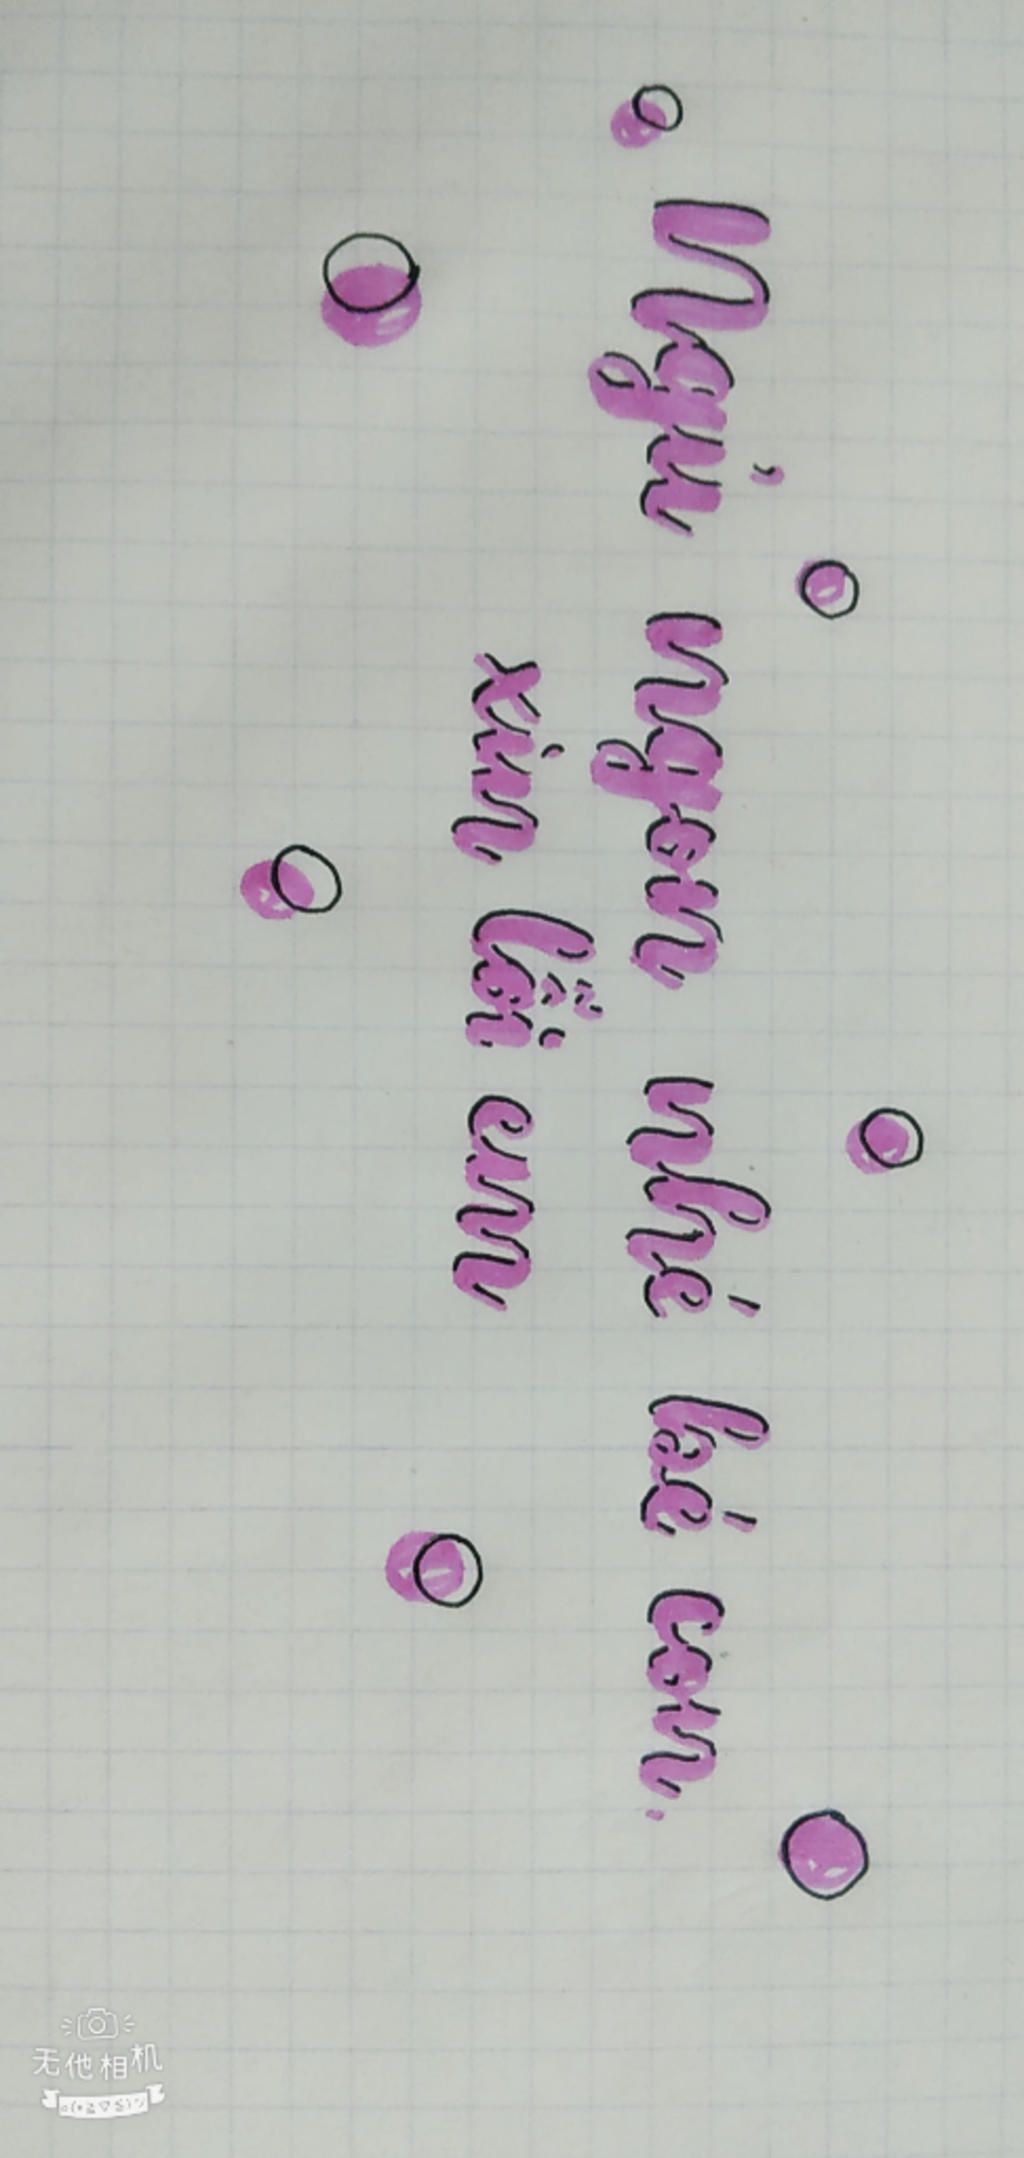 Ngủ ngon nhé bé con.
xin lỗi em
无他相机